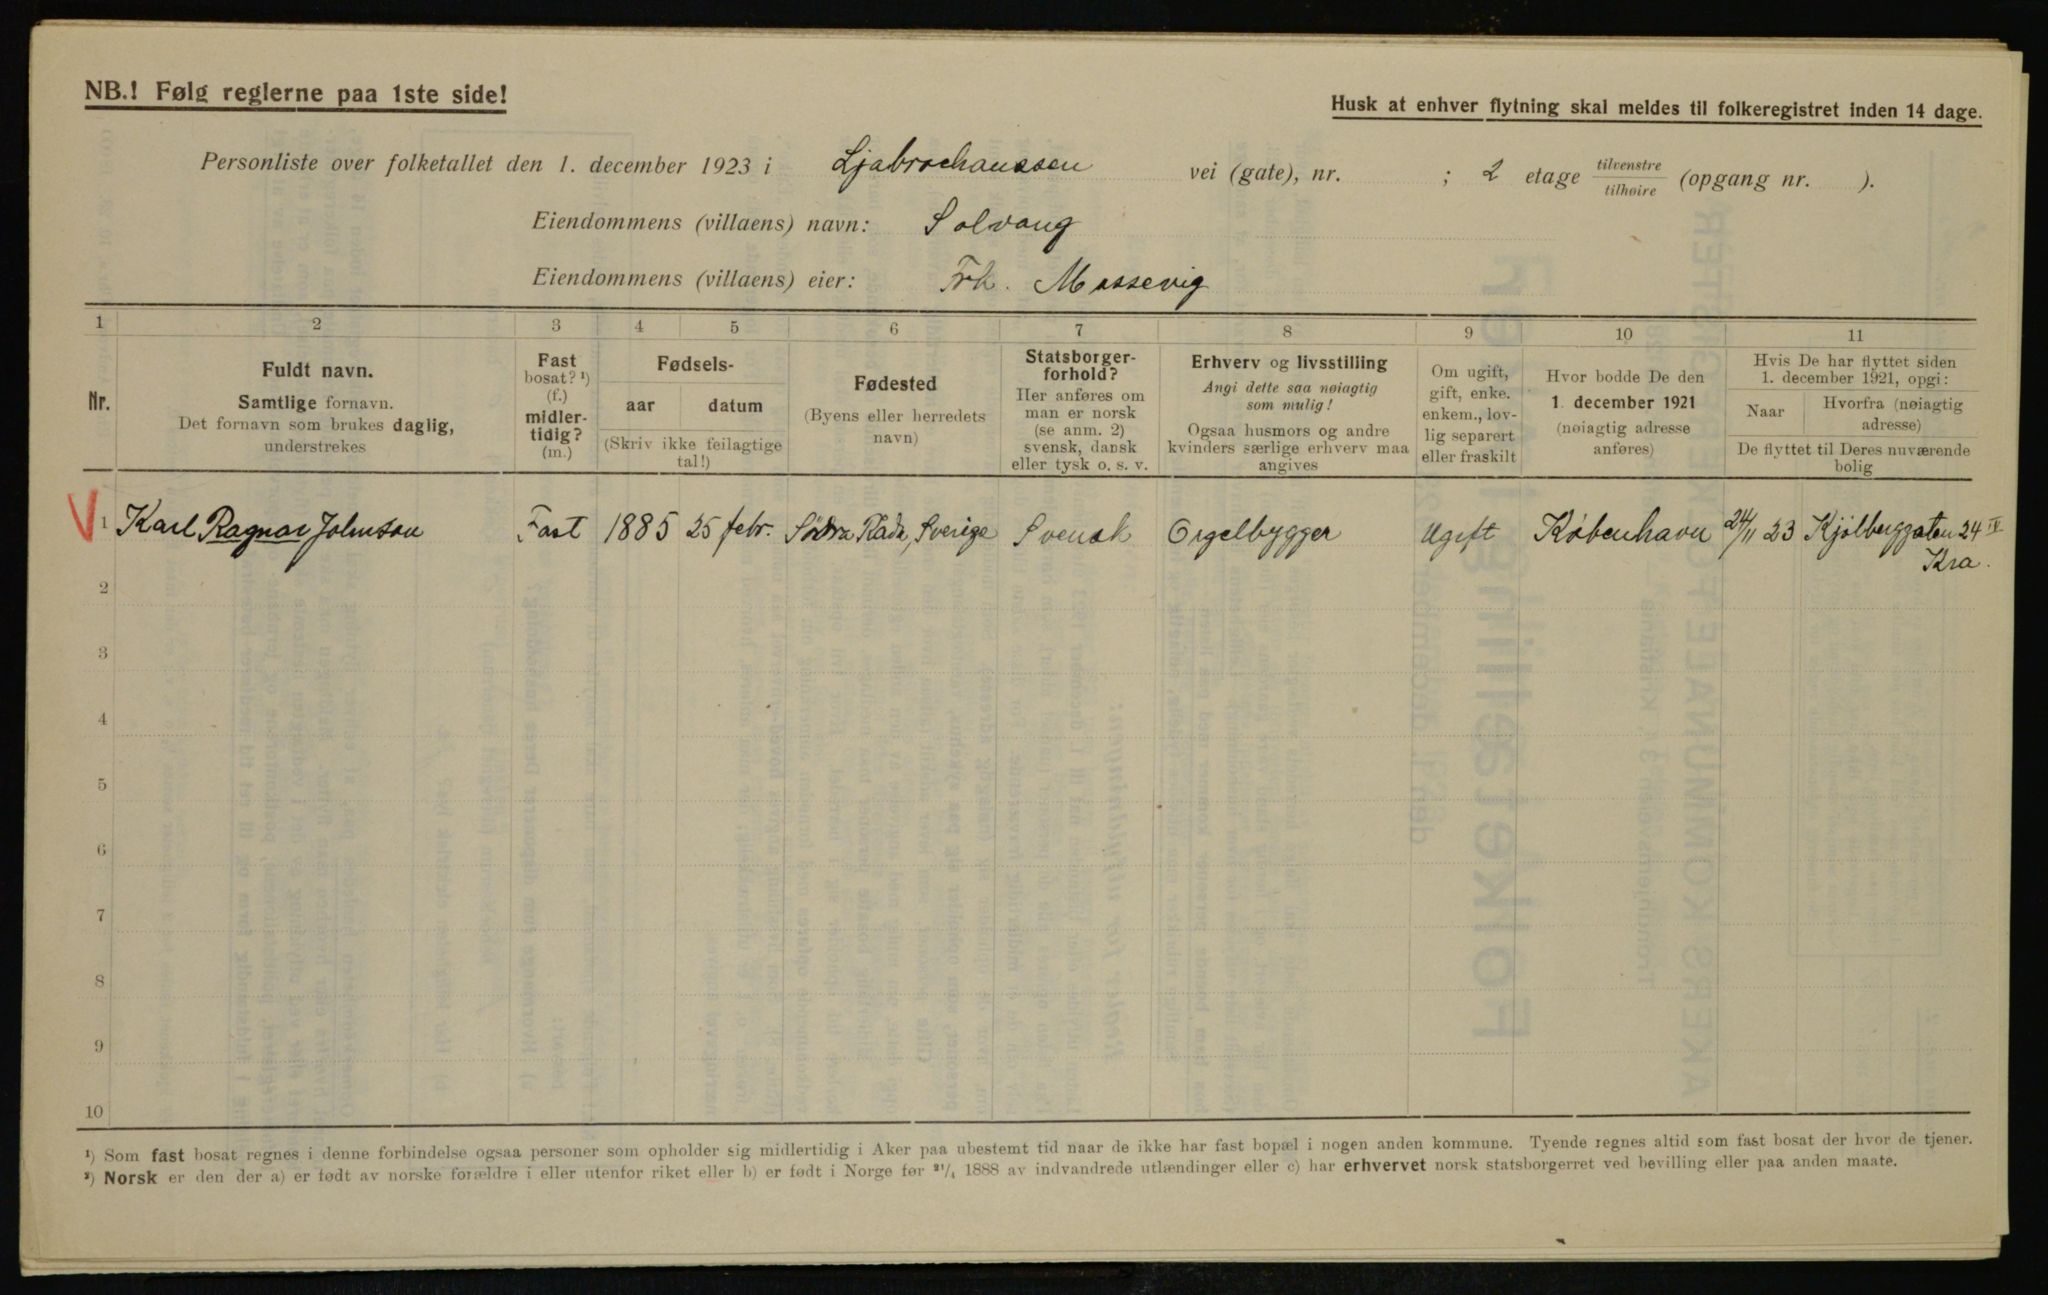 NB.! Følg reglerne paa 1ste side!
Husk at enhver flytning skal meldes til folkeregistret inden 14 dage.
Personliste over folketallet den 1. december 1923 i Ljabrochaussen vei (gate), nr. ; 2 etage tilvenstre tilhøire (opgang nr. ).
Eiendommens (villaens) navn: Solvang
Eiendommens (villaens) eier: Frk. Mossevig
1 2 3 4 5 6 7 8 9 10 11
Nr.
Fuldt navn.
Samtlige fornavn.
Det fornavn som brukes daglig,
understrekes
Fast
bosat? ¹)
(f.)
midler-
tidig?
(m.)
Fødsels-
aar datum
(Skriv ikke feilagtige
tal!)
Fødested
(Byens eller herredets
navn)
Statsborger-
forhold?
Her anføres om
man er norsk
(se anm. 2)
svensk, dansk
eller tysk o. s. v.
Erhverv og livsstilling
Angi dette saa nøiagtig
som mulig!
Ogsaa husmors og andre
kvinders særlige erhverv maa
angives
Om ugift,
gift, enke.
enkem., lov-
lig separert
eller fraskilt
Hvor bodde De den
1. december 1921
(nøiagtig adresse
anføres)
Hvis De har flyttet siden
1. december 1921, opgi:
Naar
Hvorfra (nøiagtig
adresse)
De flyttet til Deres nuværende
bolig
V 1 Karl Ragnar Johnson Fast 1885 25 febr. Södra Råda, Sverige Svensk Orgelbygger Ugift København 24/11 23 Kjølberggaten 24 IV
Kra.
2
3
4
5
6
7
8
9
10
¹) Som fast bosat regnes i denne forbindelse ogsaa personer som opholder sig midlertidig i Aker paa ubestemt tid naar de ikke har fast bopæl i nogen anden kommune. Tyende regnes altid som fast bosat der hvor de tjener.
²) Norsk er den der a) er født av norske forældre i eller utenfor riket eller b) er født i Norge før ²¹/₄ 1888 av indvandrede utlændinger eller c) har erhvervet norsk statsborgerret ved bevilling eller paa anden maate.